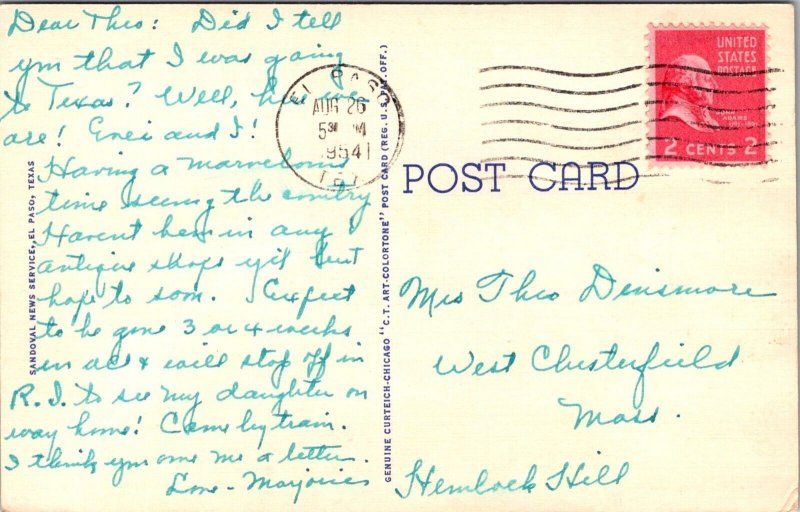 Dear Theo: Did I tell
you that I was going
to Texas? Well, here we
are! and I!
Having a marvelous
time seeing the country
Havent been in any
antique shops yet but
hope to soon. Expect
to be gone 3 or 4 weeks
in all & will stop off in
R.I. to see my daughter on
way home! Came by train.
I think you owe me a letter.
Love - Marjorie
SANDOVAL NEWS SERVICE, EL PASO, TEXAS
GENUINE CURTEICH-CHICAGO "C.T. ART-COLORTONE" POST CARD (REG. U.S. PAT. OFF.)
EL PASO
AUG 26
5 30 PM
1954
TEX
UNITED
STATES
POSTAGE
JOHN
ADAMS
2 CENTS 2
POST CARD
Mrs Theo Densmore
West Chesterfield
Mass.
Hemlock Hill